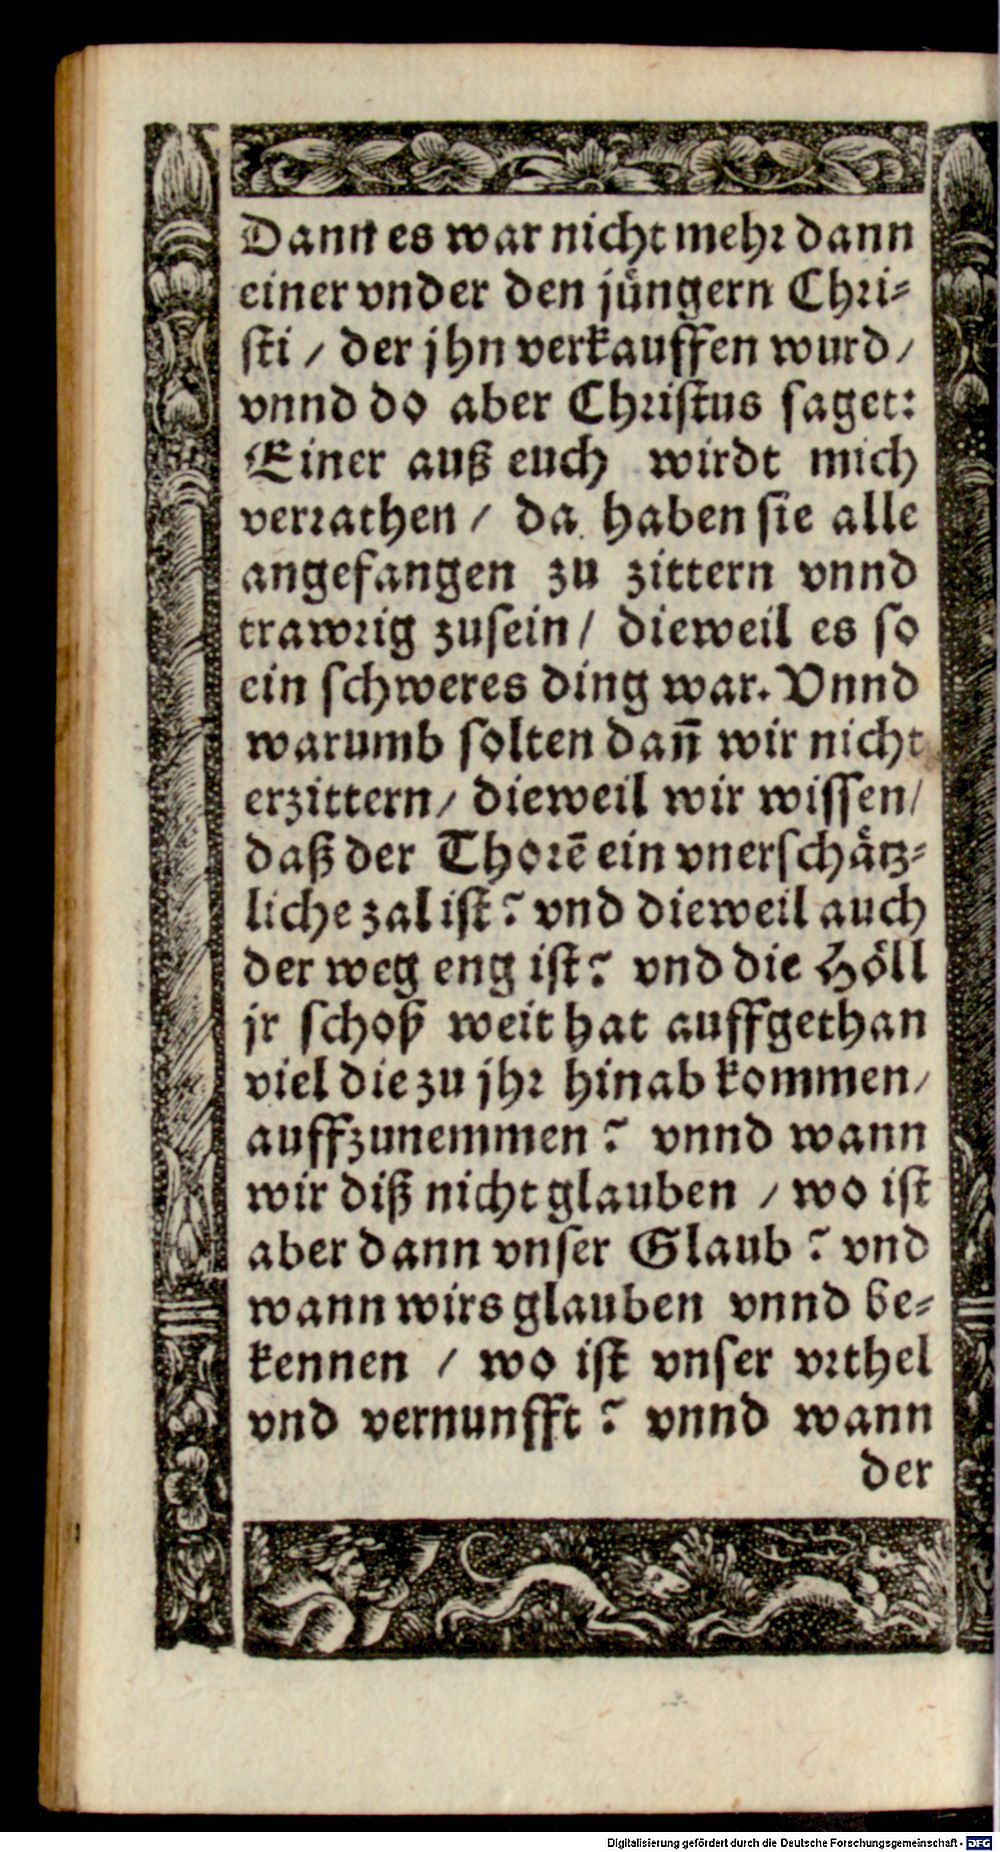 Dann es war nicht mehr dann
einer vnder den jüngern Chri-
sti / der jhn verkauffen wurd /
vnnd do aber Christus saget:
Einer auß euch wirdt mich
verrathen / da haben sie alle
angefangen zu zittern vnnd
trawrig zusein / dieweil es so
ein schweres ding war. Vnnd
warumb solten dañ wir nicht
erzittern / dieweil wir wissen /
daß der Thorē ein vnerschätz-
liche zal ist? vnd dieweil auch
der weg eng ist? vnd die Höll
jr schoß weit hat auffgethan
viel die zu jhr hinab kommen /
auffzunemmen? vnnd wann
wir diß nicht glauben / wo ist
aber dann vnser Glaub? vnd
wann wirs glauben vnnd be-
kennen / wo ist vnser vrthel
vnd vernunfft? vnnd wann
der
Digitalisierung gefördert durch die Deutsche Forschungsgemeinschaft - DFG